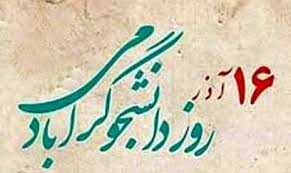 ۱۶ آذر
روز دانشجو گرامی باد